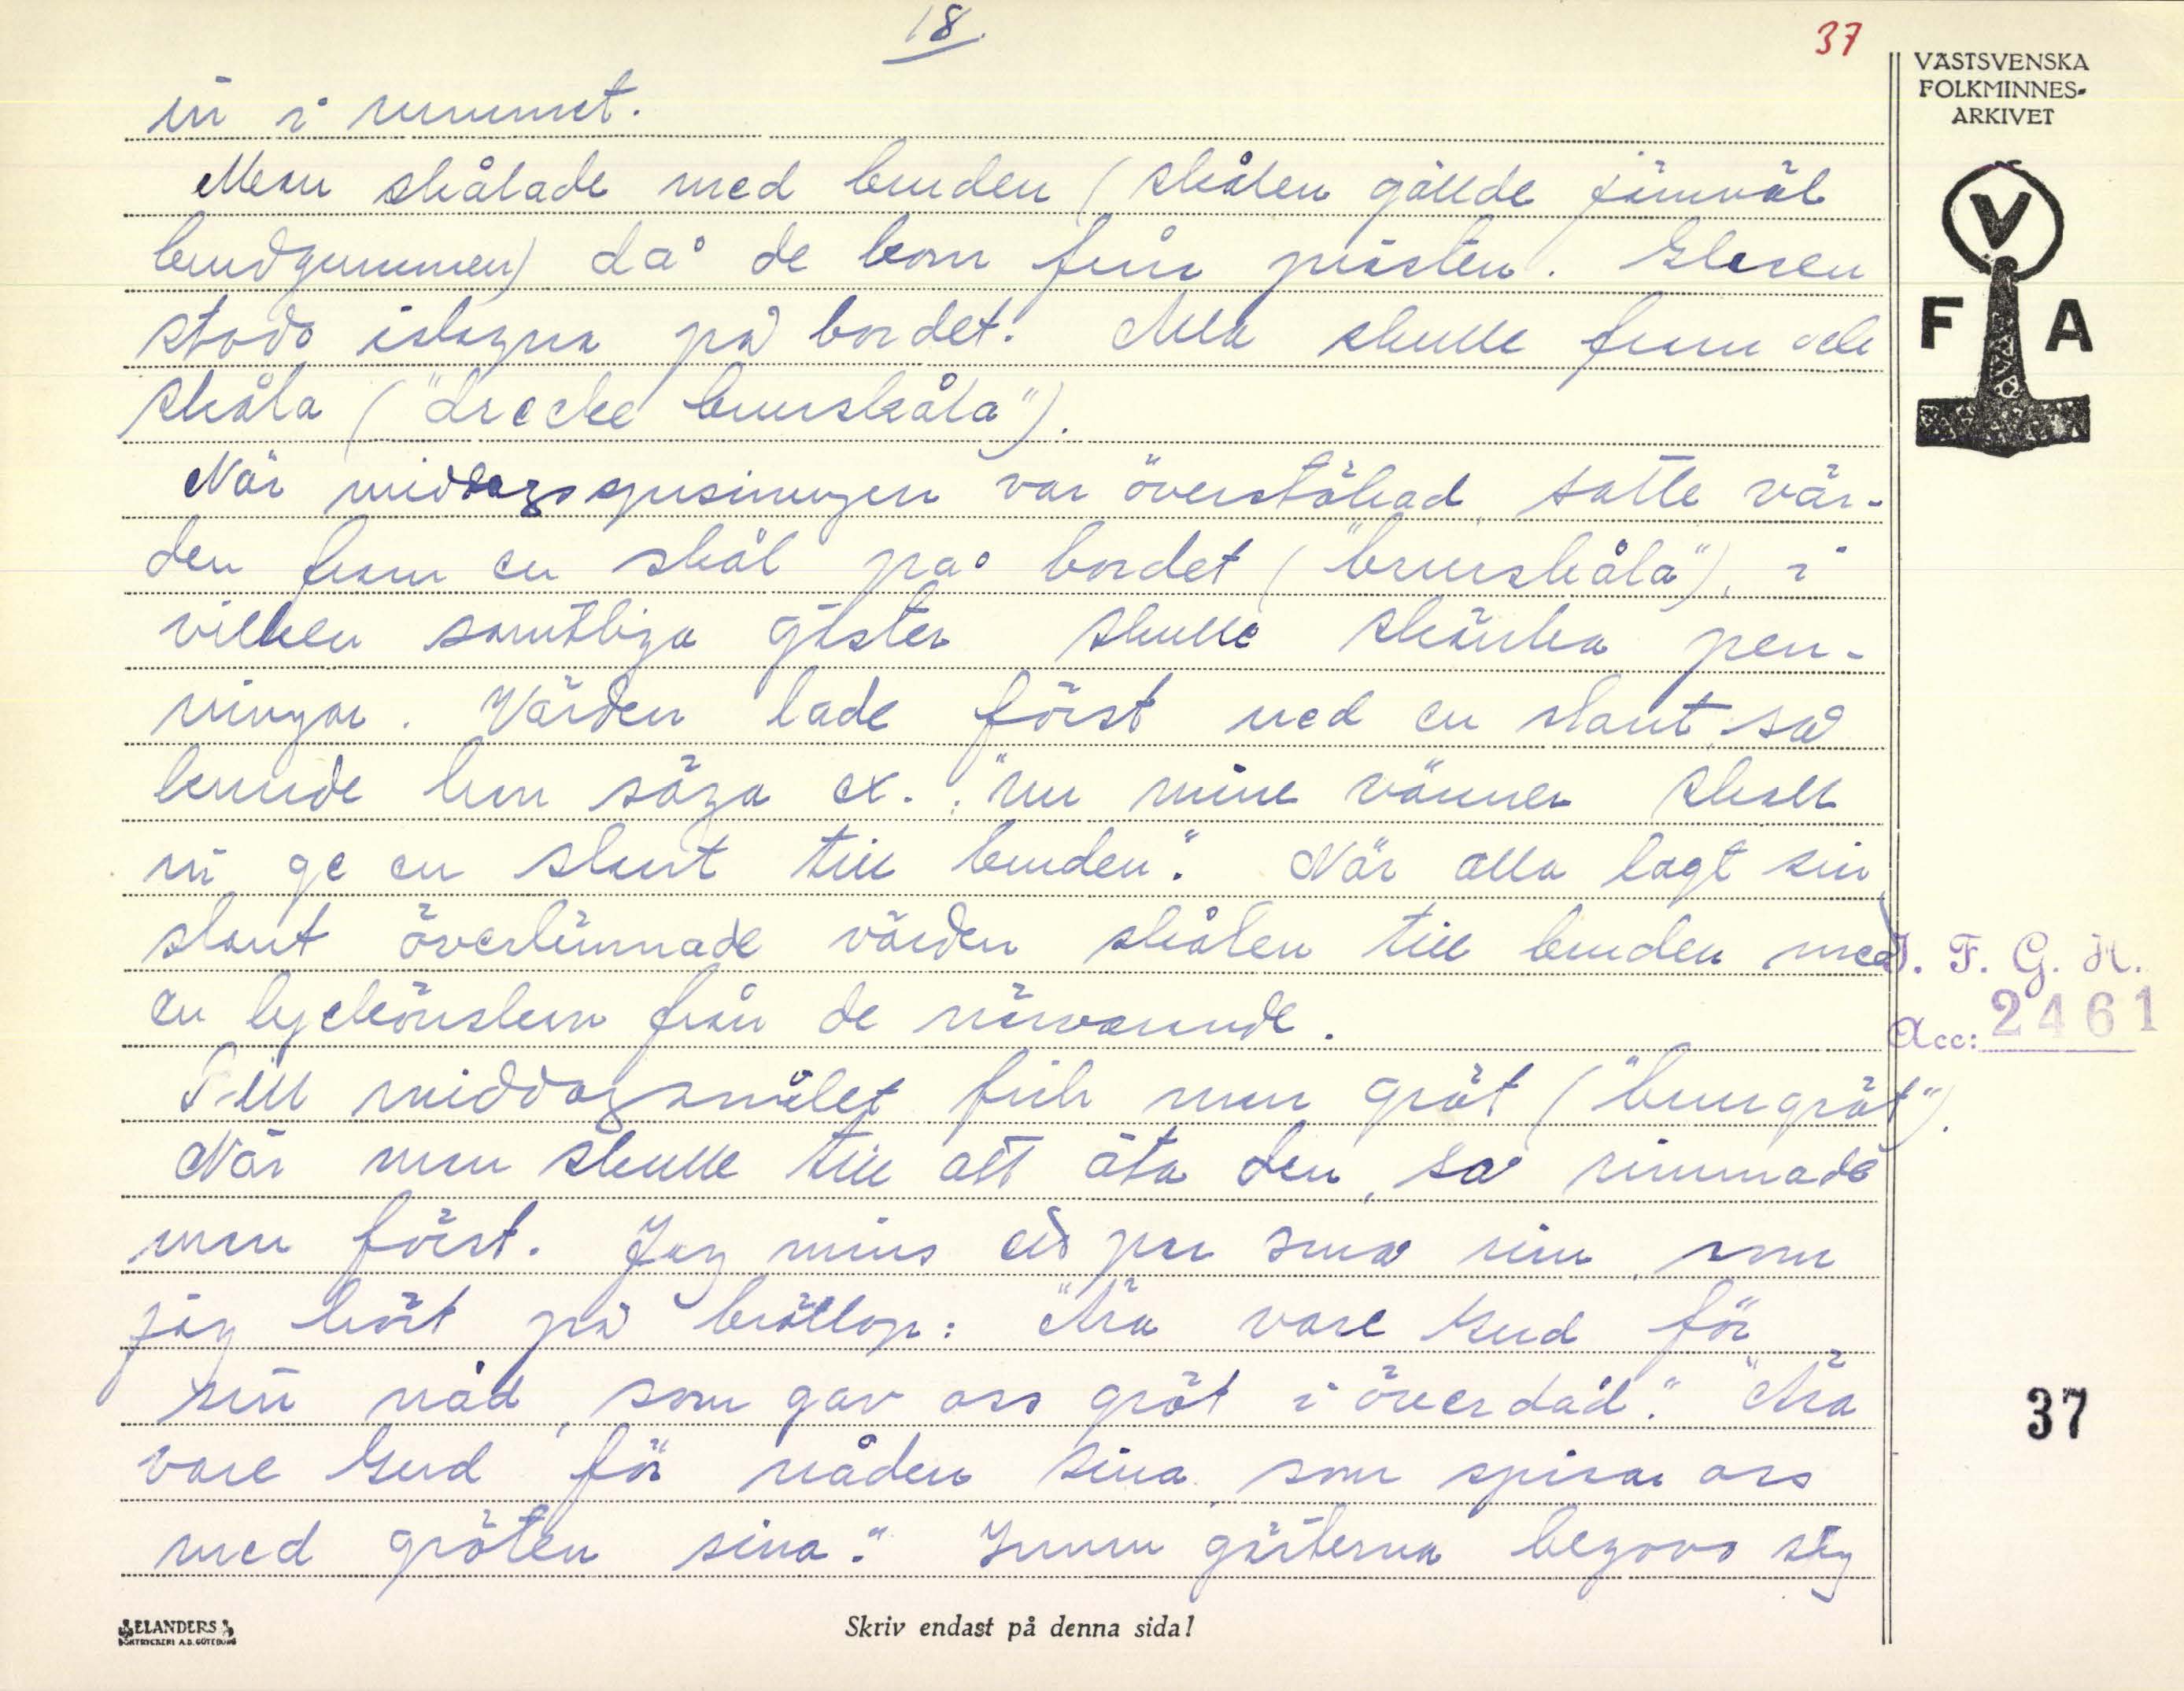 18.
37
VÄSTSVENSKA
FOLKMINNES-
ARKIVET
V
F A
in i rummet.
Man skålade med bruden (skålen gällde jämväl
brudgummen) då de kom från prästen. Glasen
stodo islagna på bordet. Alla skulle fram och
skåla ("drecke brurskåla").
När middagsspisningen var överstökad, satte vär-
den fram en skål på bordet ("bruрskåla"), i
vilken samtliga gäster skulle skänka pen-
ningar. Värden lade först ned en slant, så
kunde han säga ex.: "nu mine vänner skall
ni ge en slant till bruden". När alla lagt sin
slant överlämnade värden skålen till bruden med
en lyckönskan från de närvarande.
Till middagsmålet fick man gröt ("bruregröt").
När man skulle till att äta den, så rimmade
man först. Jag minns ett par små rim, som
jag hört på bröllop: "Ära vare Gud för
sin nåd, som gav oss gröt i överdåd". "Ära
vare Gud för nåden sina, som spisar oss
med gröten sina." Innan gästerna begavo sig
I. F. G. H.
Acc: 2461
37
ELANDERS
BOKTRYCKERI A.B. GÖTEBORG
Skriv endast på denna sida!